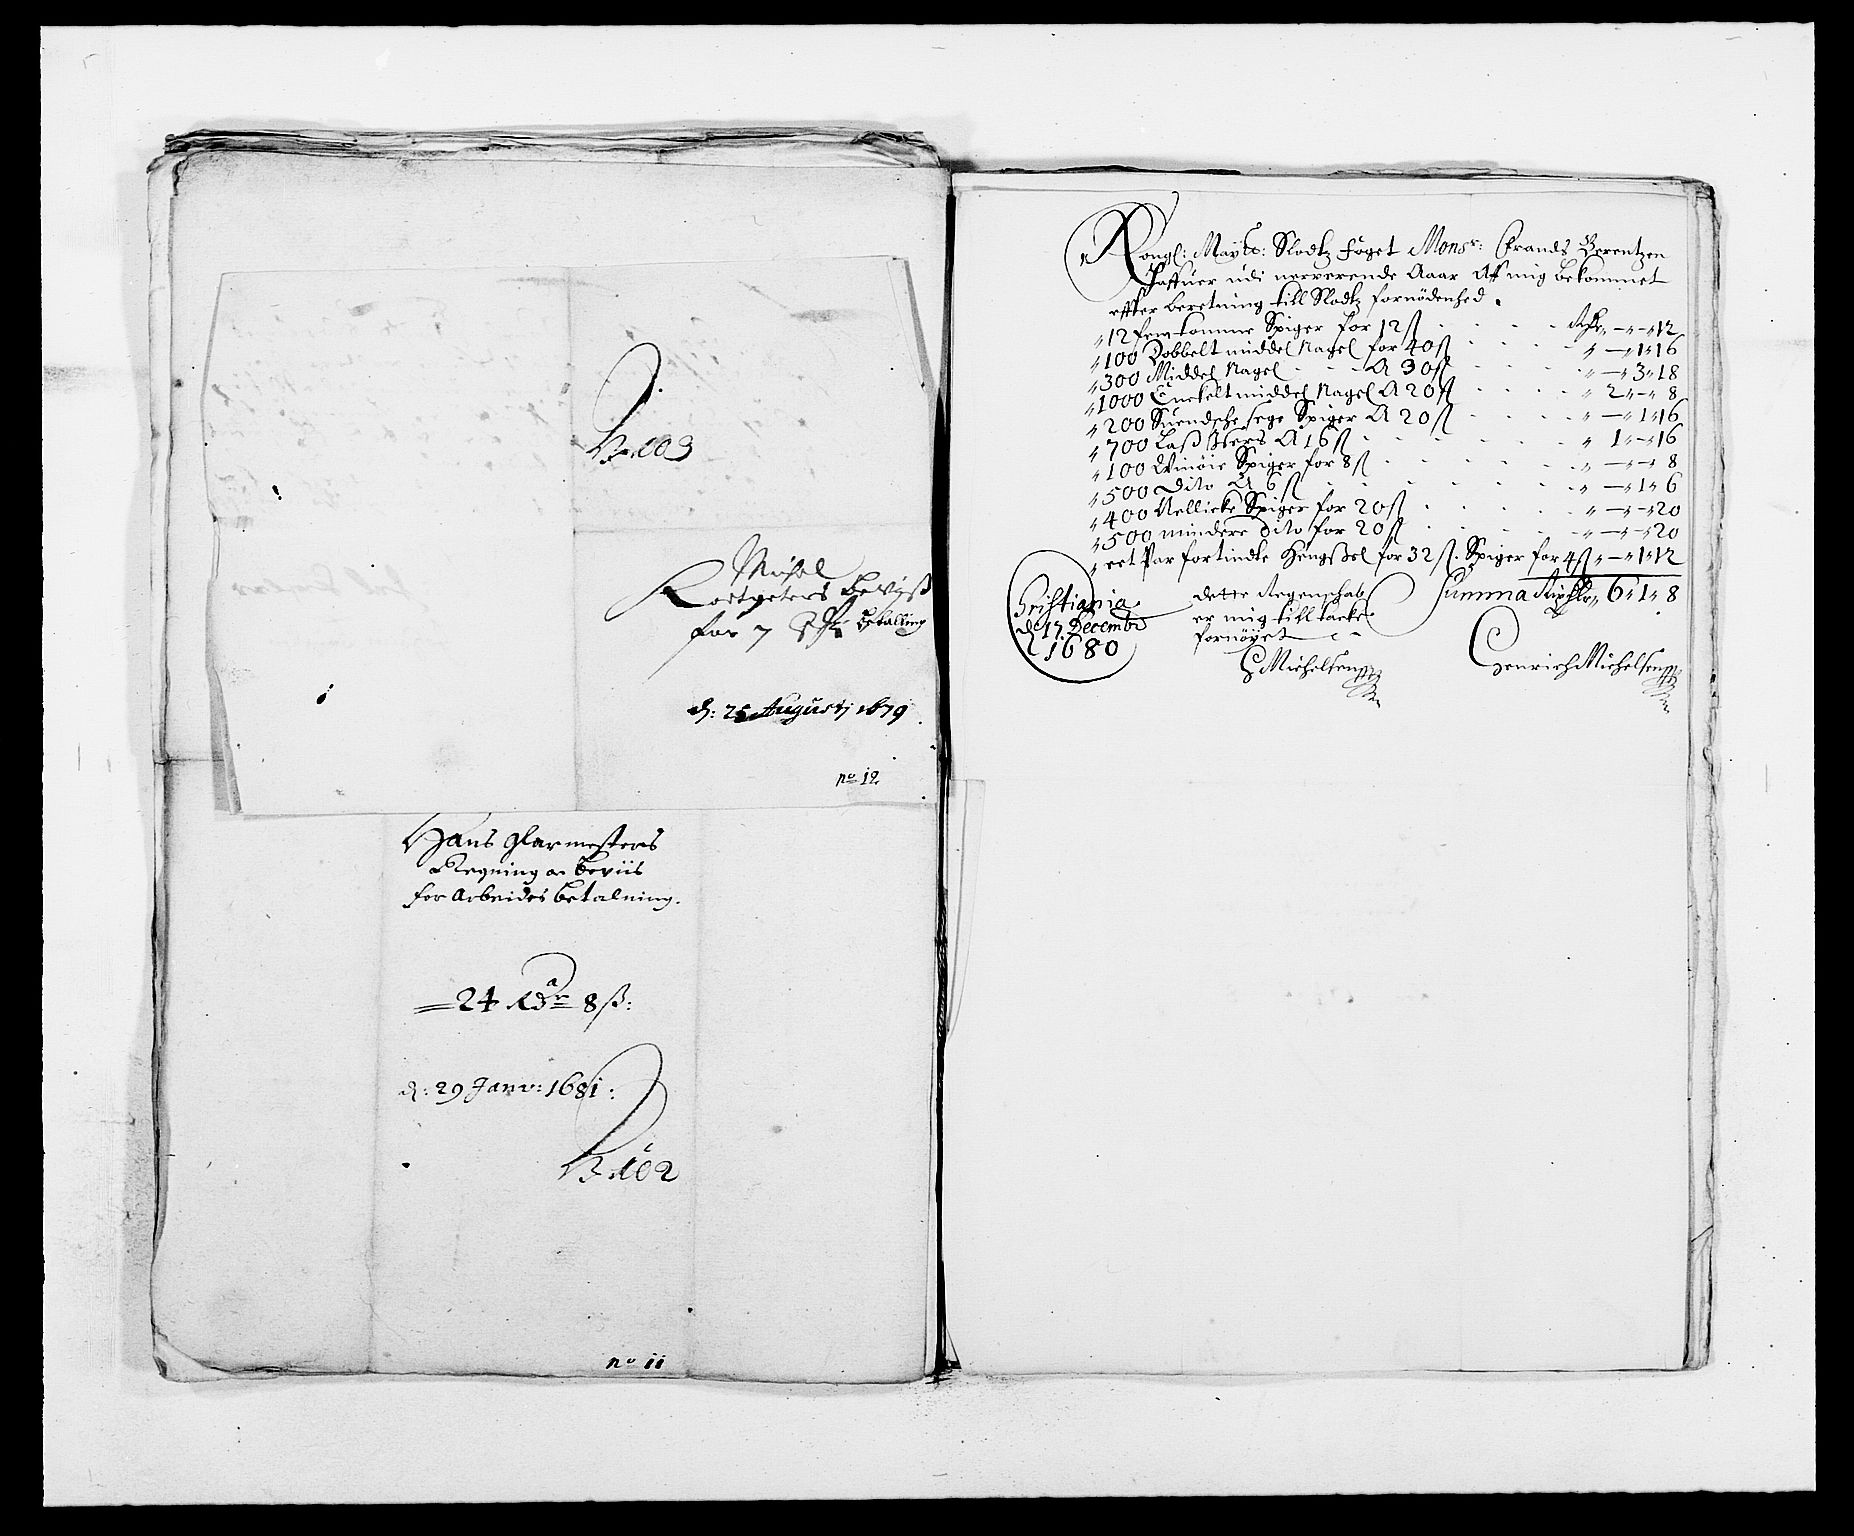 No 103
Michel
Kortpeters beviſs
for 7 betalling
d: 25 Augustj 1679
no 12
Hans Glarmesters
Regning oc beviis
for Arbeides betalning.
24 Rdr 8 ß:
d: 29 Janv: 1681:
No 102
no 11
Kongl: Maytz: Slodtz foget Monsr: Frands Berentzen
Haffuer udi nerverende Aaar Aff mig bekommet
effter beretning till Slodtz fornödenhed.
12 femtomme Spiger for 12 ß - - - - Rdr - - 12
100 Dobbelt middel Nagel for 40 ß - - - - 1 16
300 Middel Nagel - - A 30 ß - - - - 3 18
1000 Enckelt middel Nagel A 20 ß - - - - 2 - 8
200 Suendsche lege Spiger A 20 ß - - - - 1 16
700 A 16 ß - - - - 1 - 16
100 Spiger for 8 ß - - - - - 8
500 Dito A 6 ß - - - - 1 6
400 Nellicke Spiger for 20 ß - - - - - 20
500 mindere Dito for 20 ß - - - - - 20
eet Par fortindte Hengßel for 32 ß. Spiger for 4 ß - 1 12
Summa Rixdlr 6 1 8
Christiania
d 17 Decembr
A 1680
dette Regenschab
er mig till tacke
fornöyet
H Michelsen
Henrich Michelsen